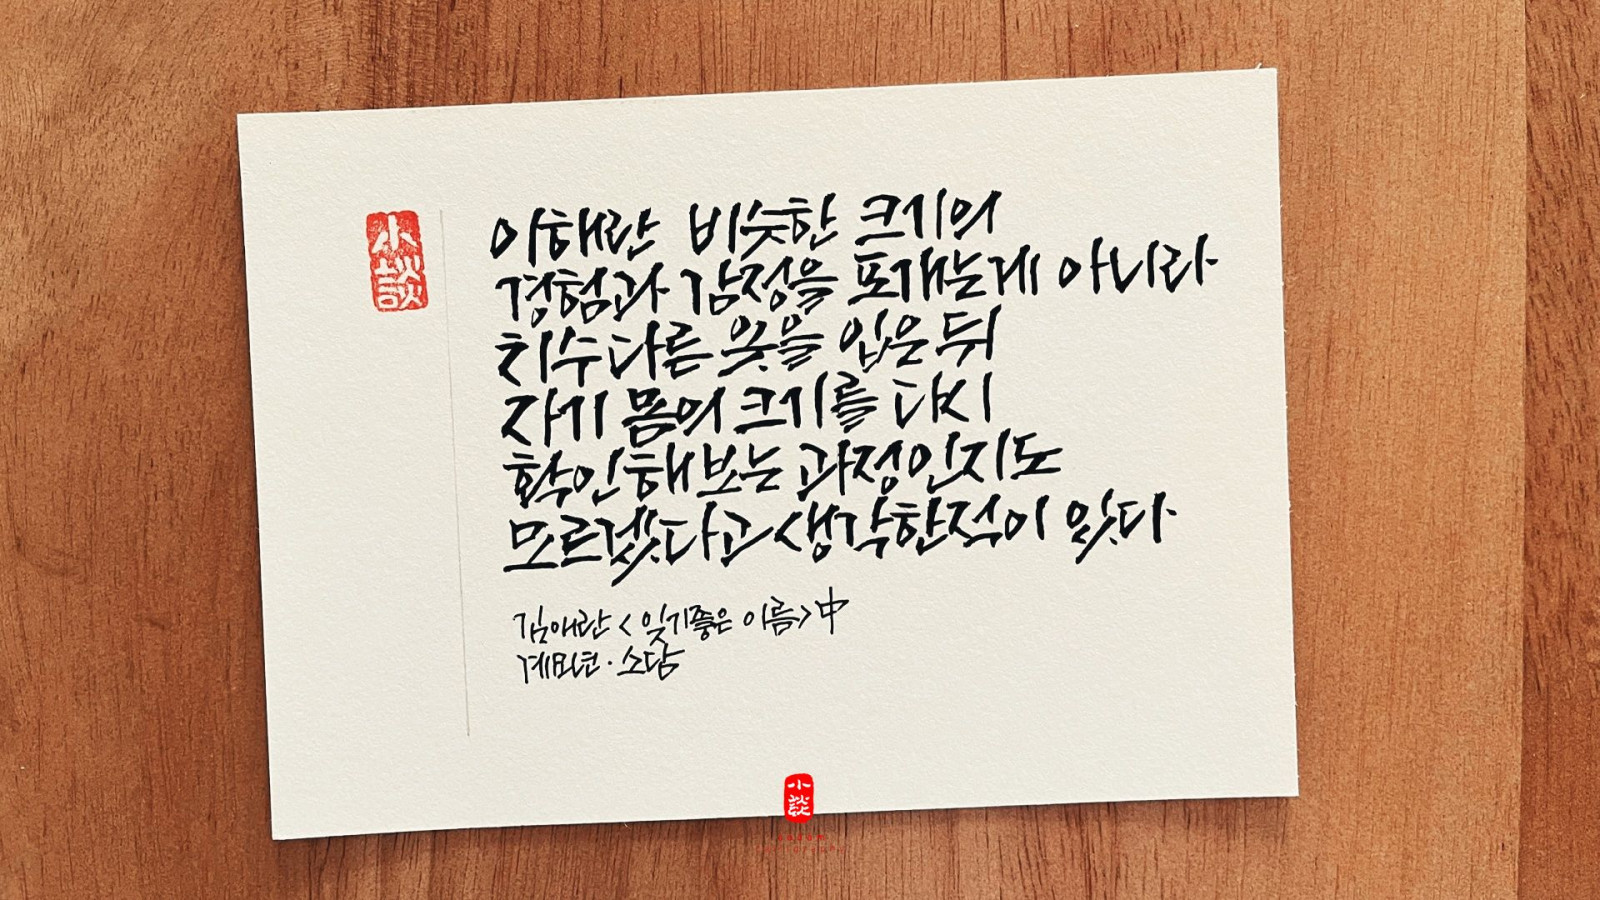 小談
이해란 비슷한 크기의
경험과 감정을 포개는게 아니라
치수 다른 옷을 입은 뒤
자기 몸의 크기를 다시
확인해보는 과정인지도
모르겠다고 생각한적이 있다
김애란 <잊기좋은 이름> 中
소담
小談